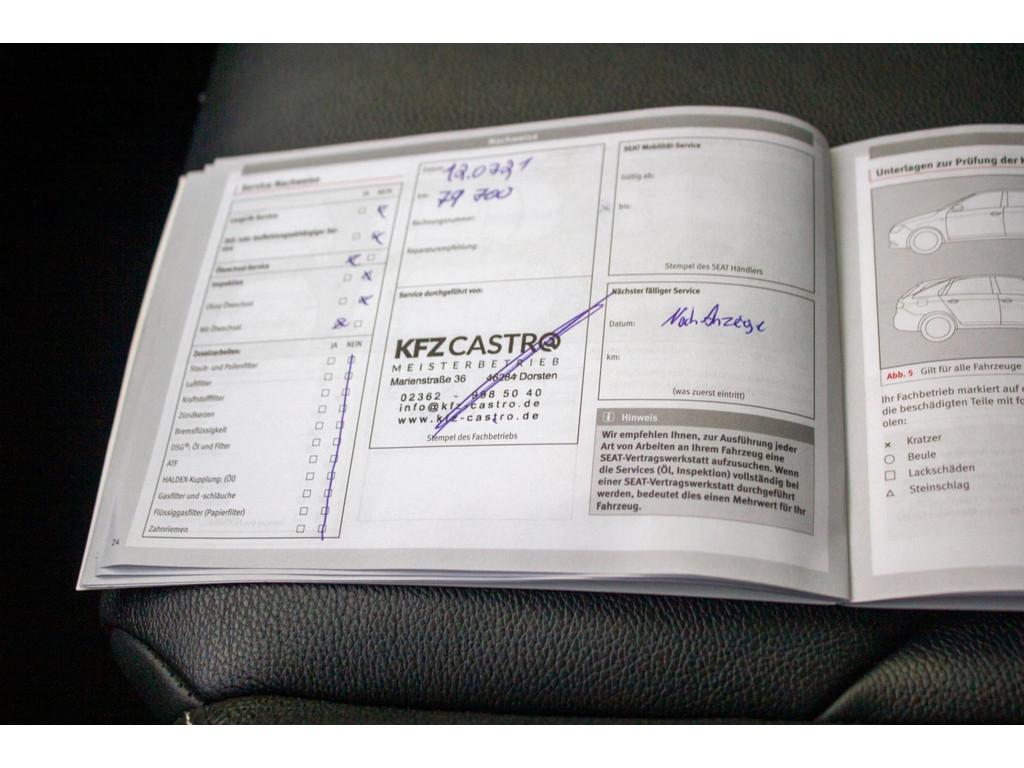 Nachweise
Service-Nachweise
JA NEIN
LongLife-Service
Zeit- oder laufleistungsabhängiger Ser-
vice
Ölwechsel-Service
Inspektion
Ohne Ölwechsel
Mit Ölwechsel
Zusatzarbeiten: JA NEIN
Staub- und Pollenfilter
Luftfilter
Kraftstofffilter
Zündkerzen
Bremsflüssigkeit
DSG®: Öl und Filter
ATF
HALDEX-Kupplung: (Öl)
Gasfilter und -schläuche
Flüssiggasfilter (Papierfilter)
Zahnriemen
24
Datum: 12.0721
km: 79 700
Rechnungsnummer:
Reparaturempfehlung:
Service durchgeführt von:
KFZ CASTRO
MEISTERBETRIEB
Marienstraße 36 46284 Dorsten
02362 - 998 50 40
info@kfz-castro.de
www.kfz-castro.de
Stempel des Fachbetriebs
SEAT Mobilität-Service
Gültig ab:
bis:
Stempel des SEAT Händlers
Nächster fälliger Service
Datum: Nach Anzeige
km:
(was zuerst eintritt)
i Hinweis
Wir empfehlen Ihnen, zur Ausführung jeder
Art von Arbeiten an Ihrem Fahrzeug eine
SEAT-Vertragswerkstatt aufzusuchen. Wenn
die Services (Öl, Inspektion) vollständig bei
einer SEAT-Vertragswerkstatt durchgeführt
werden, bedeutet dies einen Mehrwert für Ihr
Fahrzeug.
Unterlagen zur Prüfung der
Abb. 5 Gilt für alle Fahrzeuge
Ihr Fachbetrieb markiert auf
die beschädigten Teile mit
olen:
× Kratzer
○ Beule
□ Lackschäden
△ Steinschlag